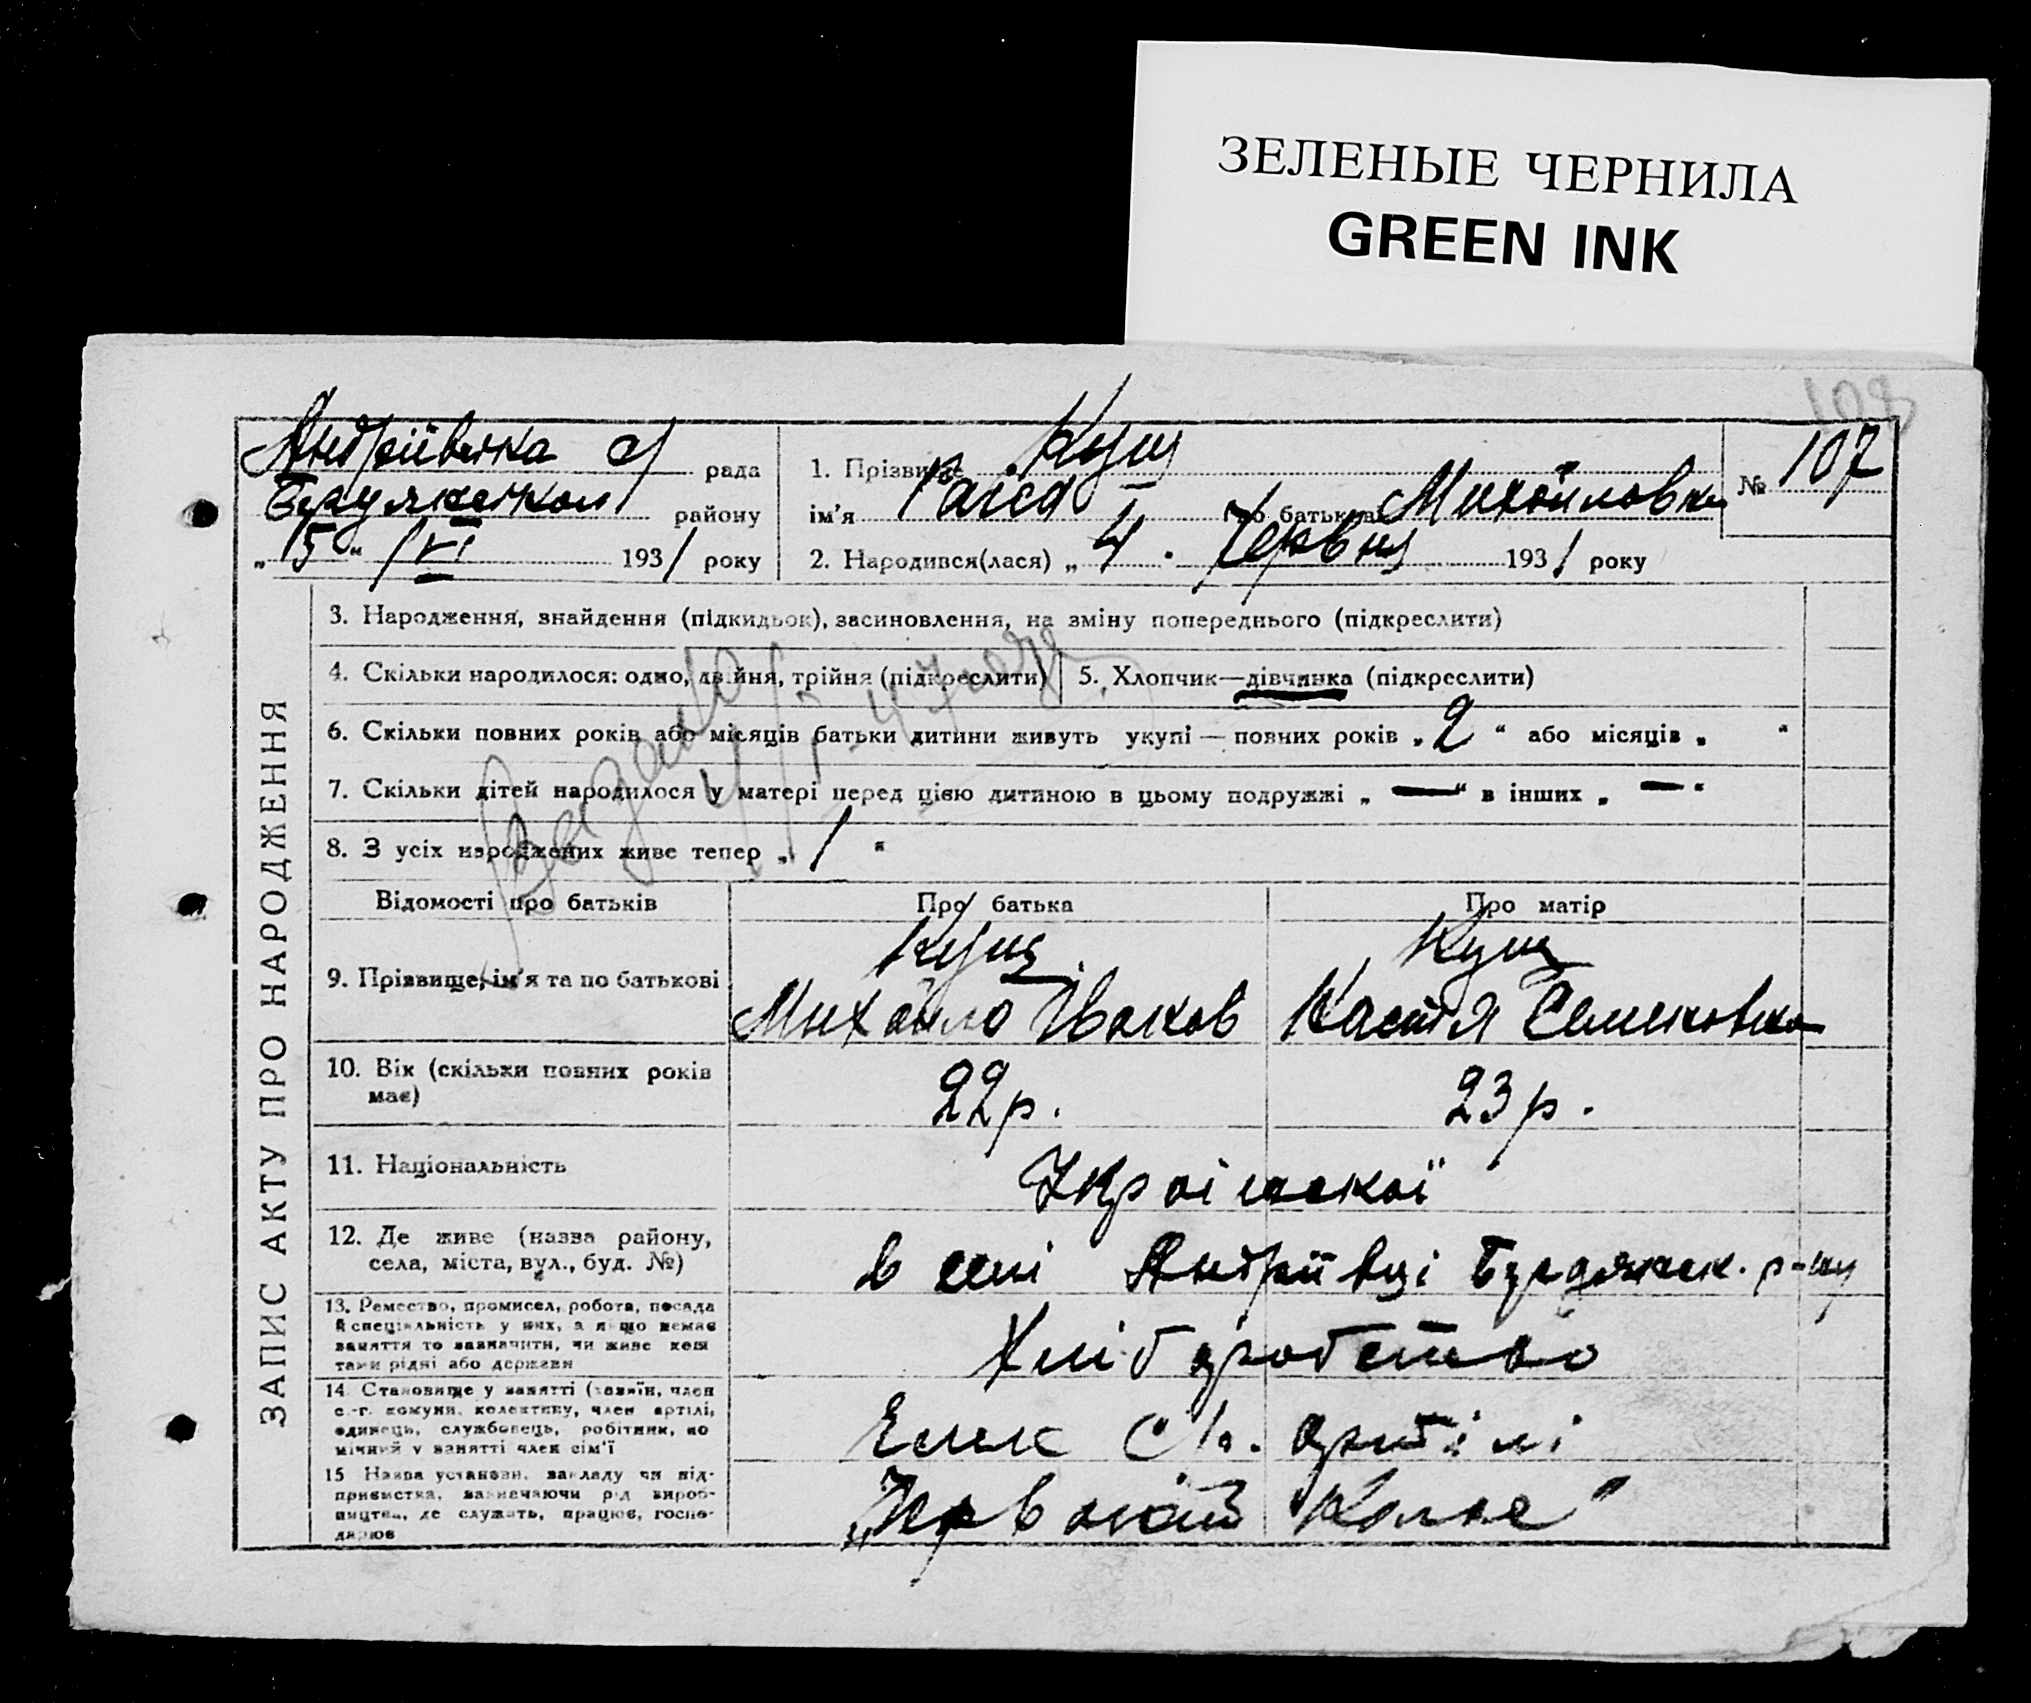 ЗЕЛЕНЫЕ ЧЕРНИЛА
GREEN INK
108
Андріївська с/ рада
району
„ 15 “ /VI 1931 року
1. Прізвище Кущ
ім'я Раїса по батькові Михайловна
2. Народився(лася) „ 4 . Червня 1931 року
№ 107
ЗАПИС АКТУ ПРО НАРОДЖЕННЯ
3. Народження, знайдення (підкидьок), засиновлення, на зміну попереднього (підкреслити)
4. Скільки народилося: одно, двійня, трійня (підкреслити)
5. Хлопчик—дівчинка (підкреслити)
6. Скільки повних років або місяців батьки дитини живуть укупі — повних років „ 2 “ або місяців „ “
7. Скільки дітей народилося у матері перед цією дитиною в цьому подружжі „ — “ в інших „ — “
8. З усіх народжених живе тепер „ 1 “
Відомості про батьків Про батька Про матір
9. Прізвище, ім'я та по батькові
Кущ Кущ
Михайло Іванов Настя Семеновна
10. Вік (скільки повних років має)
22 р. 23 р.
11. Національність
Української
12. Де живе (назва району, села, міста, вул., буд. №)
в селі Андріївці р-ну
13. Ремество, промисел, робота, посада
й спеціяльність у них, а якщо немає
заняття то зазначити, чи живе кош
тами рідні або держави
Хліборобство
14. Становище у занятті (хазяїн, член
с.-г. комуни, колективу, член артілі,
одинець, службовець, робітник, по
мічний у занятті член сім'ї
Член с/г. артілі
15 Назва установи, закладу чи під-
приємства, зазначаючи рід вироб-
ництва, де служить, працює, госпо-
дарює
„Червоний “